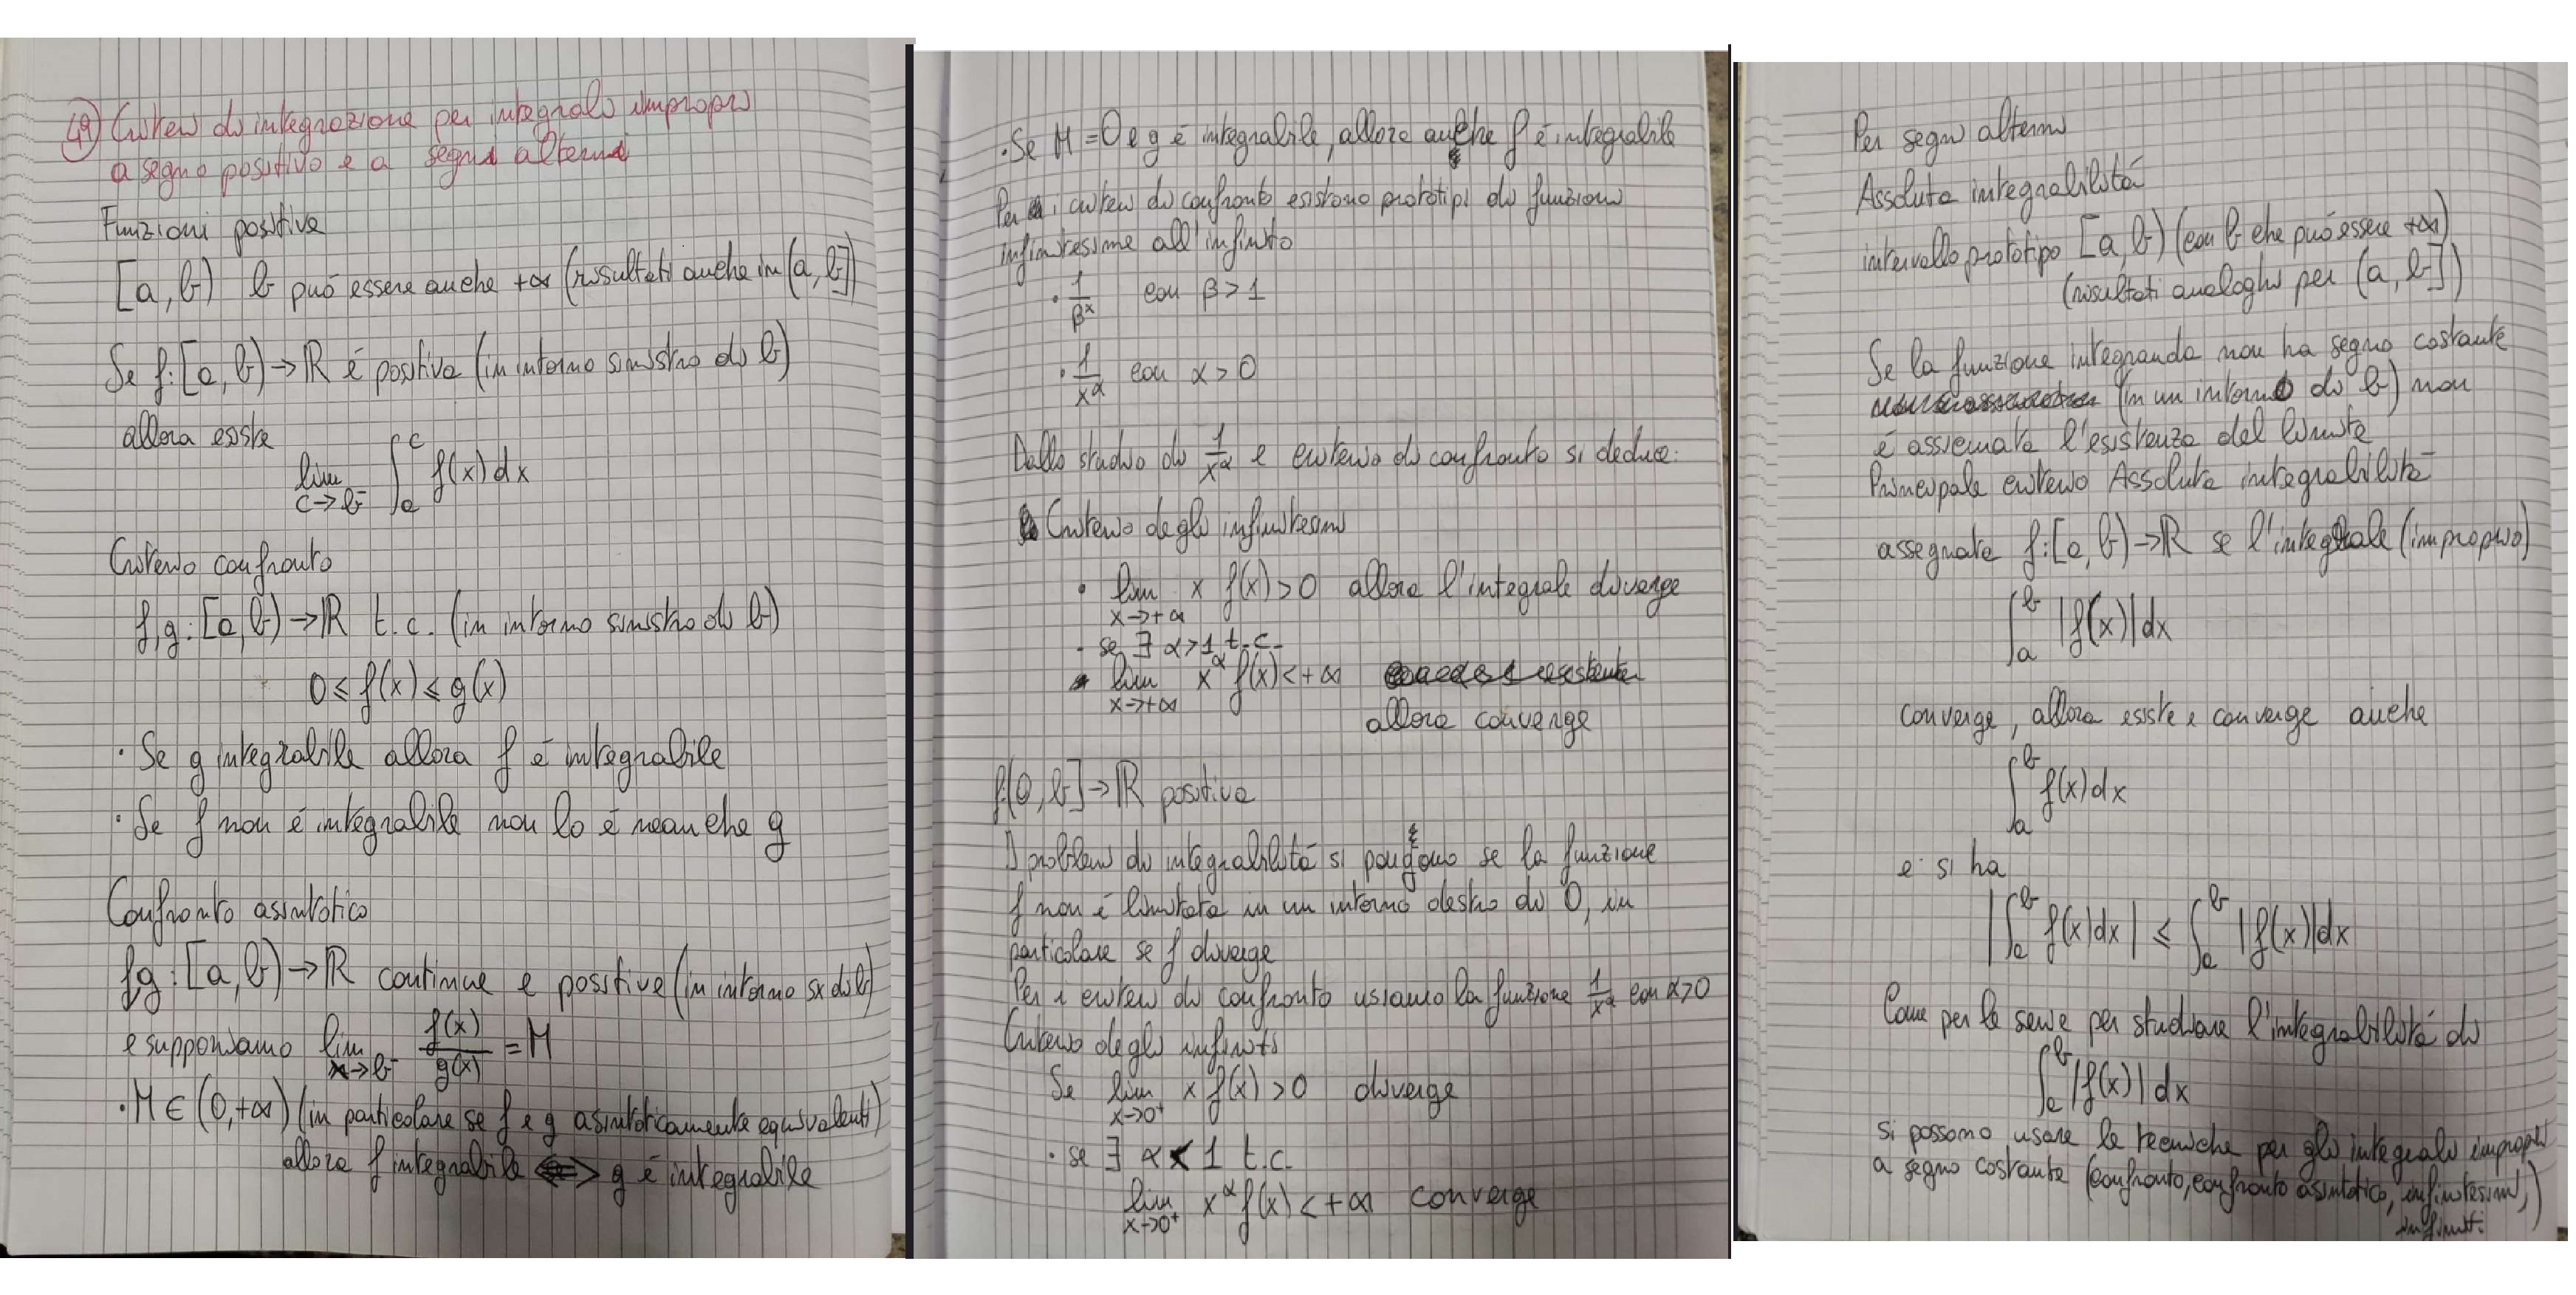 49) Criteri di integrazione per integrali impropri
a segno positivo e a segni alterni
Funzioni positive
[a,b) b può essere anche +∞ (risultati anche in (a,b])
Se f:[a,b)→ℝ é positiva (in intorno sinistro di b)
allora esiste
lim c→b⁻ ∫_a^c f(x)dx
Criterio confronto
f,g:[a,b)→ℝ t.c. (in intorno sinistro di b)
0≤f(x)≤g(x)
· Se g integrabile allora f é integrabile
· Se f non é integrabile non lo é neanche g
Confronto assintotico
fg:[a,b)→ℝ continue e positive (in intorno sx di b)
e supponiamo lim x→b⁻ f(x)/g(x) = M
· M∈(0,+∞) (in particolare se f e g asintoticamente equivalenti)
allora f integrabile <=> g é integrabile
· Se M=0 e g é integrabile, allora anche f é integrabile
Per i criteri di confronto esistono prototipi di funzioni
infinitesime all'infinito
· 1/β^x con β>1
· 1/x^α con α>0
Dallo studio di 1/x^α e criterio di confronto si deduce:
Criterio degli infinitesimi
· lim x→+∞ x f(x)>0 allora l'integrale diverge
· se ∃ α>1 t.c.
lim x→+∞ x^α f(x)<+∞
allora converge
f:(0,b]→ℝ positiva
I problemi di integrabilitá si pongono se la funzione
f non é limitata in un intorno destro di 0, in
particolare se f diverge
Per i criteri di confronto usiamo la funzione 1/x^α con α>0
Criterio degli infiniti
Se lim x→0⁺ x f(x)>0 diverge
· se ∃ α<1 t.c.
lim x→0⁺ x^α f(x)<+∞ converge
Per segni alterni
Assoluta integrabilitá
intervallo prototipo [a,b) (con b che può essere +∞)
(risultati analoghi per (a,b])
Se la funzione integranda non ha segno costante
(in un intorno di b) non
é assicurata l'esistenza del limite
Principale criterio Assoluta integrabilitá
assegnata f:[a,b)→ℝ se l'integrale (improprio)
∫_a^b |f(x)|dx
converge, allora esiste e converge anche
∫_a^b f(x)dx
e si ha
|∫_a^b f(x)dx| ≤ ∫_a^b |f(x)|dx
Come per le serie per studiare l'integrabilitá di
∫_a^b |f(x)|dx
si possono usare le tecniche per gli integrali impropri
a segno costante (confronto, confronto asintotico, infinitesimi,
infiniti)